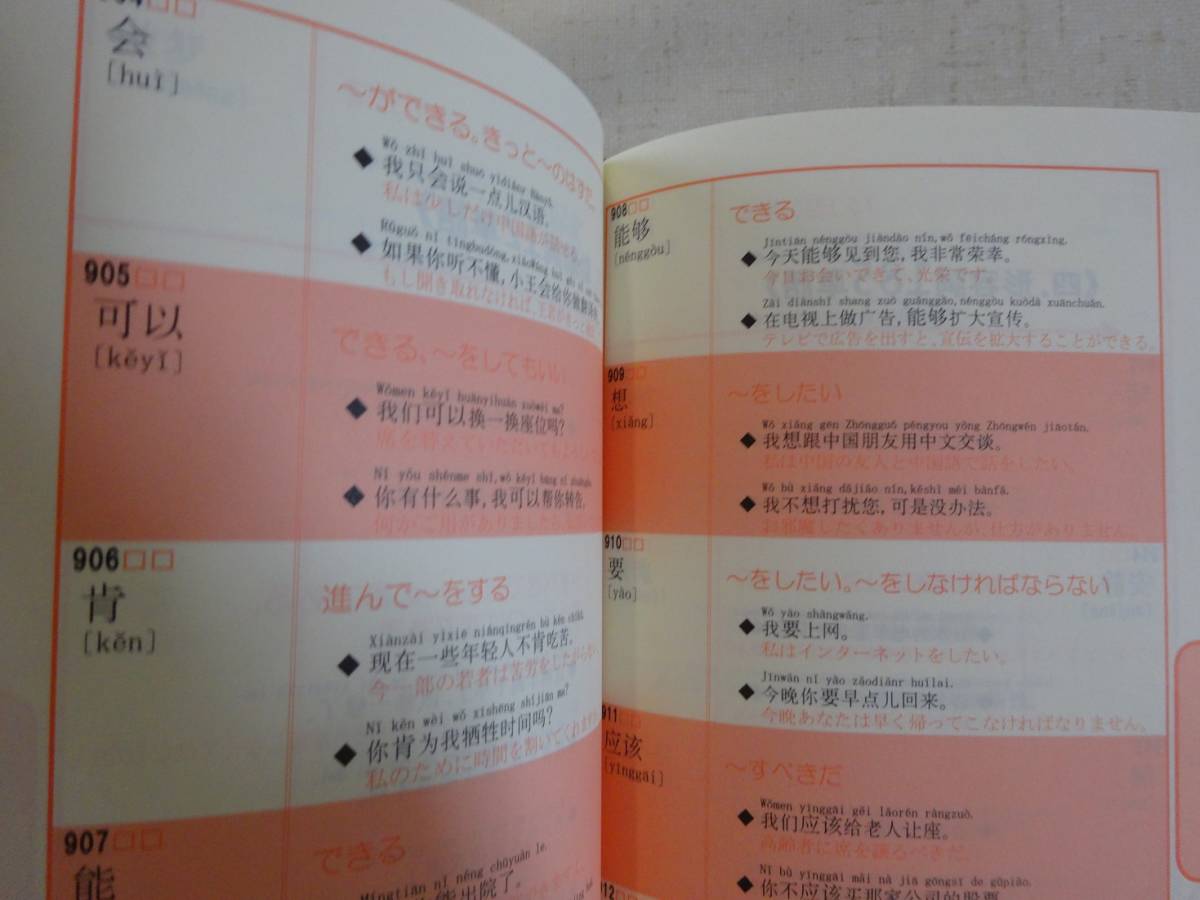 会
[huì]
～ができる。きっと～のはずだ。
Wǒ zhǐ huì shuō yìdiǎnr Hànyǔ.
◆我只会说一点儿汉语。
私は少しだけ中国語が話せる。
Rúguǒ nǐ tīngbudǒng, xiǎoWáng huì gěi nǐ
◆如果你听不懂,小王会给你做翻译
もし聞き取れなければ、王君がきっと
905□□
可以
[kěyǐ]
できる、～をしてもいい
Wǒmen kěyǐ huànyihuàn zuòwèi ma?
◆我们可以换一换座位吗?
席を替えていただいてもよ
Nǐ yǒu shénme shì, wǒ kěyǐ bāng nǐ zhuǎngào.
◆你有什么事,我可以帮你转告。
何かご用がありましたら
906□□
肯
[kěn]
進んで～をする
Xiànzài yìxiē niánqīngrén bù kěn chīkǔ.
◆现在一些年轻人不肯吃苦。
今一部の若者は苦労をしたがらない
Nǐ kěn wèi wǒ xīshēng shíjiān ma?
◆你肯为我牺牲时间吗?
私のために時間を割いてくれますか
907□□
能
できる
Míngtiān nǐ néng chūyuàn le.
能出院了。
908□□
能够
[nénggòu]
できる
Jīntiān nénggòu jiàndào nín, wǒ fēicháng róngxìng.
◆今天能够见到您,我非常荣幸。
今日お会いできて、光栄です。
Zài diànshì shang zuò guǎnggào, nénggòu kuòdà xuānchuán.
◆在电视上做广告,能够扩大宣传。
テレビで広告を出すと、宣伝を拡大することができる。
909□□
想
[xiǎng]
～をしたい
Wǒ xiǎng gēn Zhōngguó péngyou yòng Zhōngwén jiāotán.
◆我想跟中国朋友用中文交谈。
私は中国の友人と中国語で話をしたい。
Wǒ bù xiǎng dǎjiǎo nín, kěshì méi bànfǎ.
◆我不想打扰您,可是没办法。
お邪魔したくありませんが、仕方がありません。
910□□
要
[yào]
～をしたい。～をしなければならない
Wǒ yào shàngwǎng.
◆我要上网。
私はインターネットをしたい。
Jīnwǎn nǐ yào zǎodiǎnr huílai.
◆今晚你要早点儿回来。
今晩あなたは早く帰ってこなければなりません。
911□□
应该
[yīnggāi]
～すべきだ
Wǒmen yīnggāi gěi lǎorén ràngzuò.
◆我们应该给老人让座。
高齢者に席を譲るべきだ。
Nǐ bù yīnggāi mǎi nà jiā gōngsī de gǔpiào.
◆你不应该买那家公司的股票。
912□□